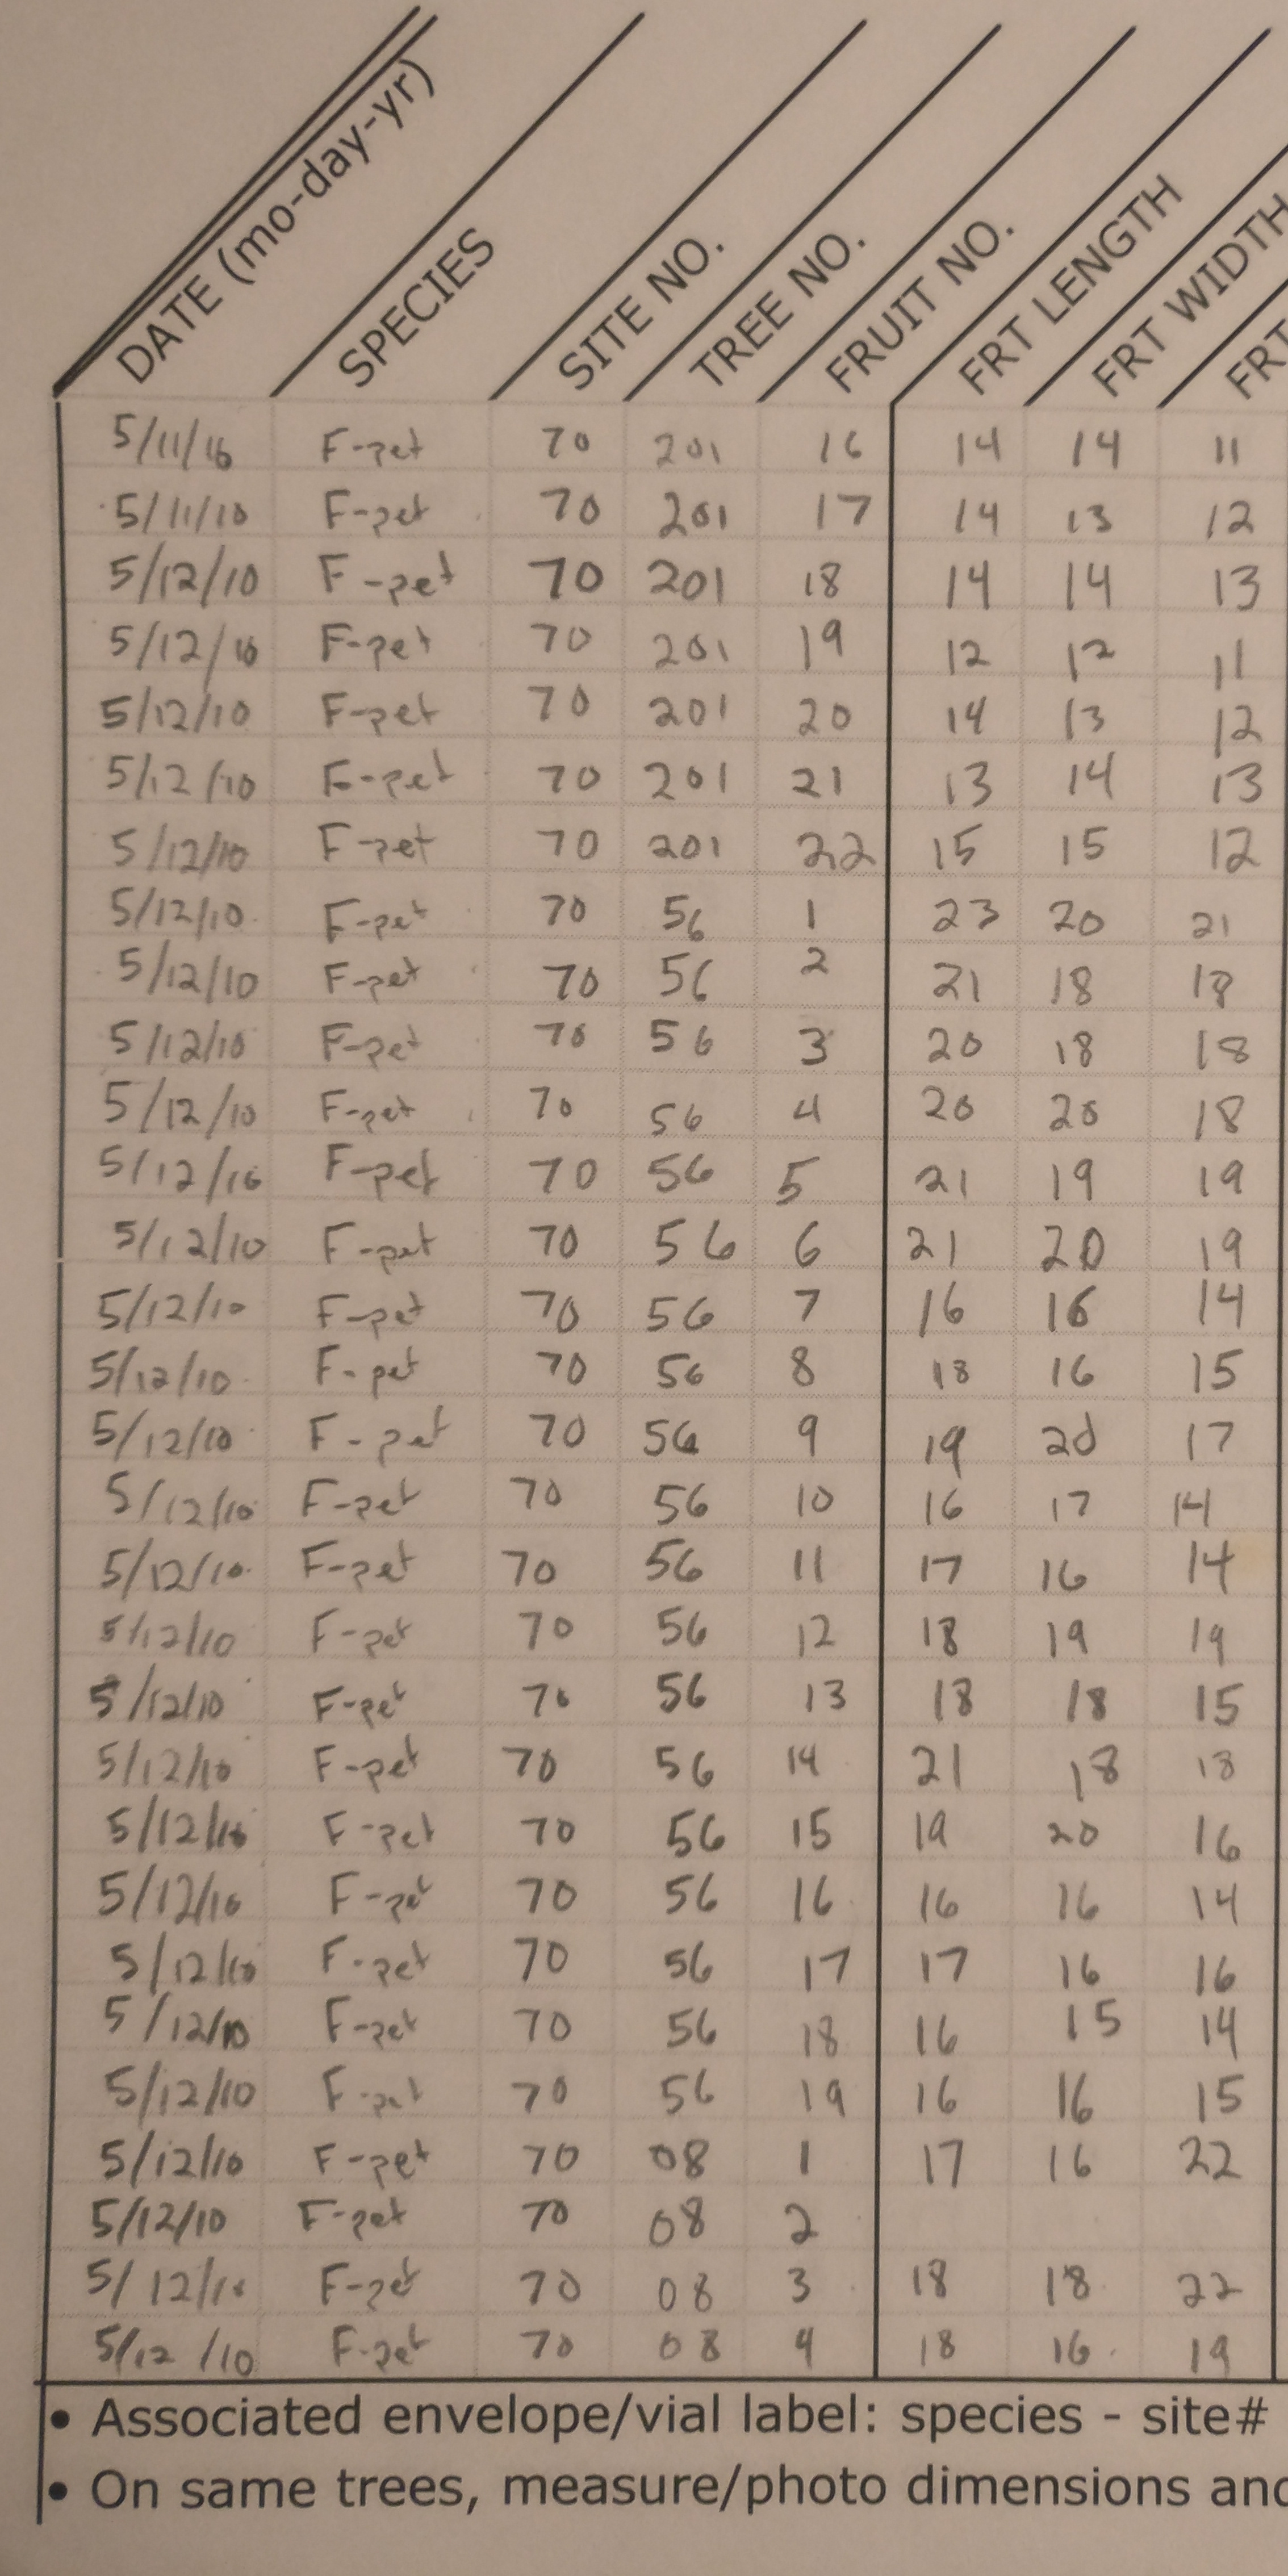 DATE (mo-day-yr) SPECIES SITE NO. TREE NO. FRUIT NO. FRT LENGTH FRT WIDTH FRT
5/11/10 F-pet 70 201 16 14 14 11
5/11/10 F-pet 70 201 17 14 13 12
5/12/10 F-pet 70 201 18 14 14 13
5/12/10 F-pet 70 201 19 12 12 11
5/12/10 F-pet 70 201 20 14 13 12
5/12/10 F-pet 70 201 21 13 14 13
5/12/10 F-pet 70 201 22 15 15 12
5/12/10 F-pet 70 56 1 23 20 21
5/12/10 F-pet 70 56 2 21 18 18
5/12/10 F-pet 70 56 3 20 18 18
5/12/10 F-pet 70 56 4 20 20 18
5/12/10 F-pet 70 56 5 21 19 19
5/12/10 F-pet 70 56 6 21 20 19
5/12/10 F-pet 70 56 7 16 16 14
5/12/10 F-pet 70 56 8 18 16 15
5/12/10 F-pet 70 56 9 19 20 17
5/12/10 F-pet 70 56 10 16 17 14
5/12/10 F-pet 70 56 11 17 16 14
5/12/10 F-pet 70 56 12 18 19 19
5/12/10 F-pet 70 56 13 18 18 15
5/12/10 F-pet 70 56 14 21 18 18
5/12/10 F-pet 70 56 15 19 20 16
5/12/10 F-pet 70 56 16 16 16 14
5/12/10 F-pet 70 56 17 17 16 16
5/12/10 F-pet 70 56 18 16 15 14
5/12/10 F-pet 70 56 19 16 16 15
5/12/10 F-pet 70 08 1 17 16 22
5/12/10 F-pet 70 08 2
5/12/10 F-pet 70 08 3 18 18 22
5/12/10 F-pet 70 08 4 18 16 19
• Associated envelope/vial label: species - site#
• On same trees, measure/photo dimensions and